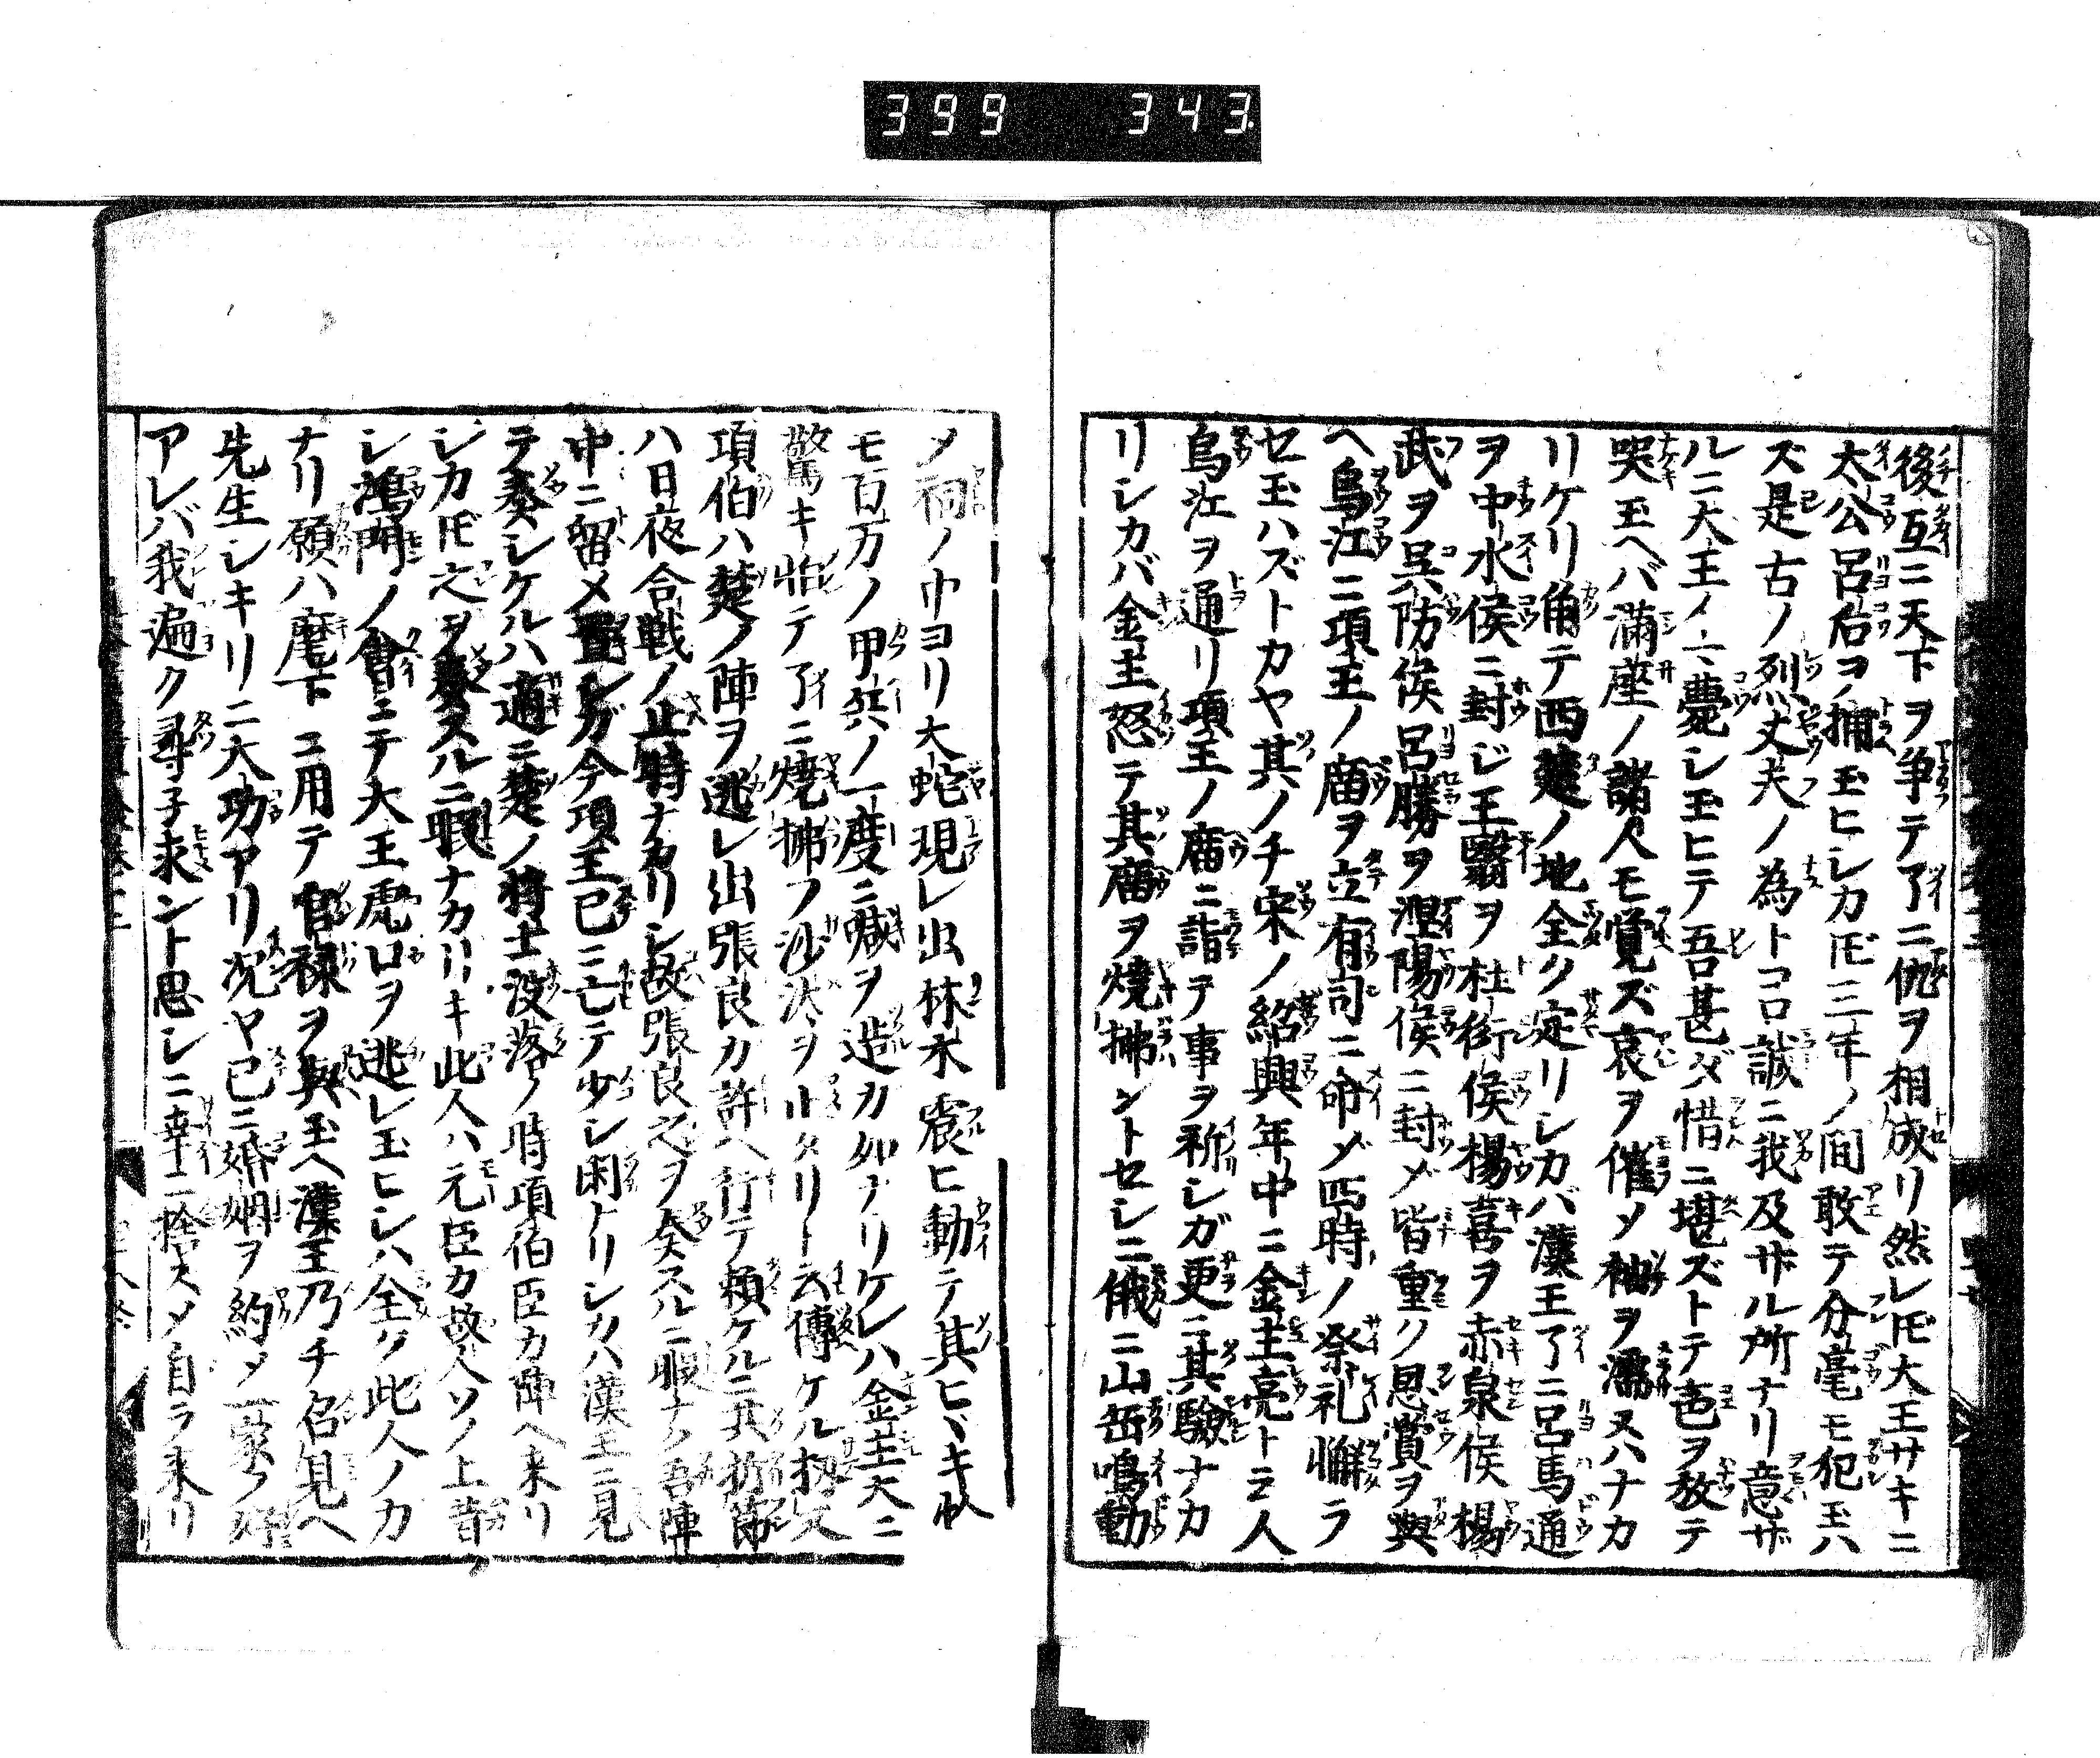 399 343
後互ニ天下ヲ爭テ了ニ仇ヲ相成リ然レ𪜈大王サキニ
太公呂后ヲ擄玉ヒシカ𪜈三年ノ間敢テ分毫モ犯玉ハ
ズ是古ノ烈丈夫ノ為トコロ誠ニ我及ザル所ナリ意ザ
ルニ大王ノ薨シ玉ヒテ吾甚ダ惜ニ堪ズトテ
哭玉ヘバ滿座ノ諸人モ覚ズ哀ヲ催メ袖ヲ濡ヌハナカ
リケリ角テ西楚ノ地全ク定リシカバ漢王了ニ呂馬通
ヲ中水侯ニ封ジ王翳ヲ杜衍侯楊喜ヲ赤泉侯楊
武ヲ呉防侯呂勝ヲ涅陽侯ニ封メ皆重ク恩賞ヲ與
ヘ烏江ニ項王ノ廟ヲ立有司ニ命メ四時ノ祭礼懈ラ
セ玉ハズトカヤ其ノチ宋ノ紹興年中ニ金主亮ト云人
烏江ヲ通リ項王ノ廟ニ詣テ事ヲ祈シガ更ニ其驗ナカ
リシカバ金主怒テ其廟ヲ燒拂ントセシニ俄ニ山岳鳴動
メ祠ノ中ヨリ大蛇現レ出林木震ヒ動テ其ヒヾキ
モ百万ノ甲兵ノ一度ニ喊ヲ造カ如ナリケレハ金主大ニ
驚キ怕テ了ニ燒拂フ沙汰ヲ止タリト云傳ケル扨又
項伯ハ楚ノ陣ヲ逃レ出張良カ許ヘ行テ頼ケルニ其折節
ハ日夜合戦ノ止時ナカリシ故張良之ヲ奏スルニ暇ナク吾陣
中ニ留メ置シガ今項王已ニ亡テ少シ閑ナリシカハ漢王ニ見
テ奏シケルハ適ニ楚ノ將士没落ノ時項伯臣カ陣ヘ来リ
シカ𪜈之ヲ奏スルニ暇ナカリキ此人ハ元臣カ故人ソノ上昔
シ鴻門ノ會ニテ大王虎口ヲ逃レ玉ヒシハ全ク此人ノカ
ナリ願ハ麾下ニ用テ官禄ヲ與玉ヘ漢王乃チ召見ヘ
先生シキリニ大功アリ况ヤ已ニ婚姻ヲ約メ一家ノ好
アレバ我遍ク尋子求ント思シニ幸ニ捨スメ自ラ来リ